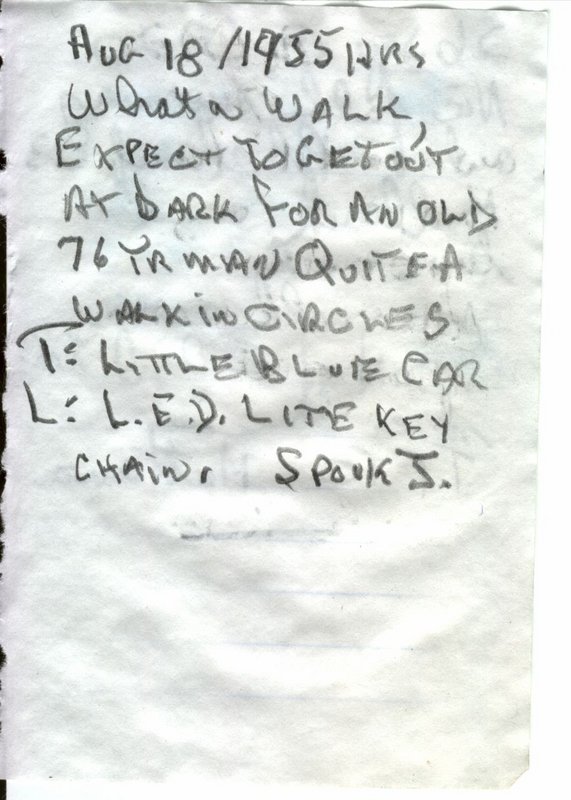 AUG 18 / 1955 HRS
What a WALK,
EXPECT TO GET OUT
AT DARK FOR AN OLD
76 YR MAN QUITE A
WALK IN CIRCLES.
T: LITTLE BLUE CAR
L: L.E.D. LITE KEY
CHAIN. SPOUK J.